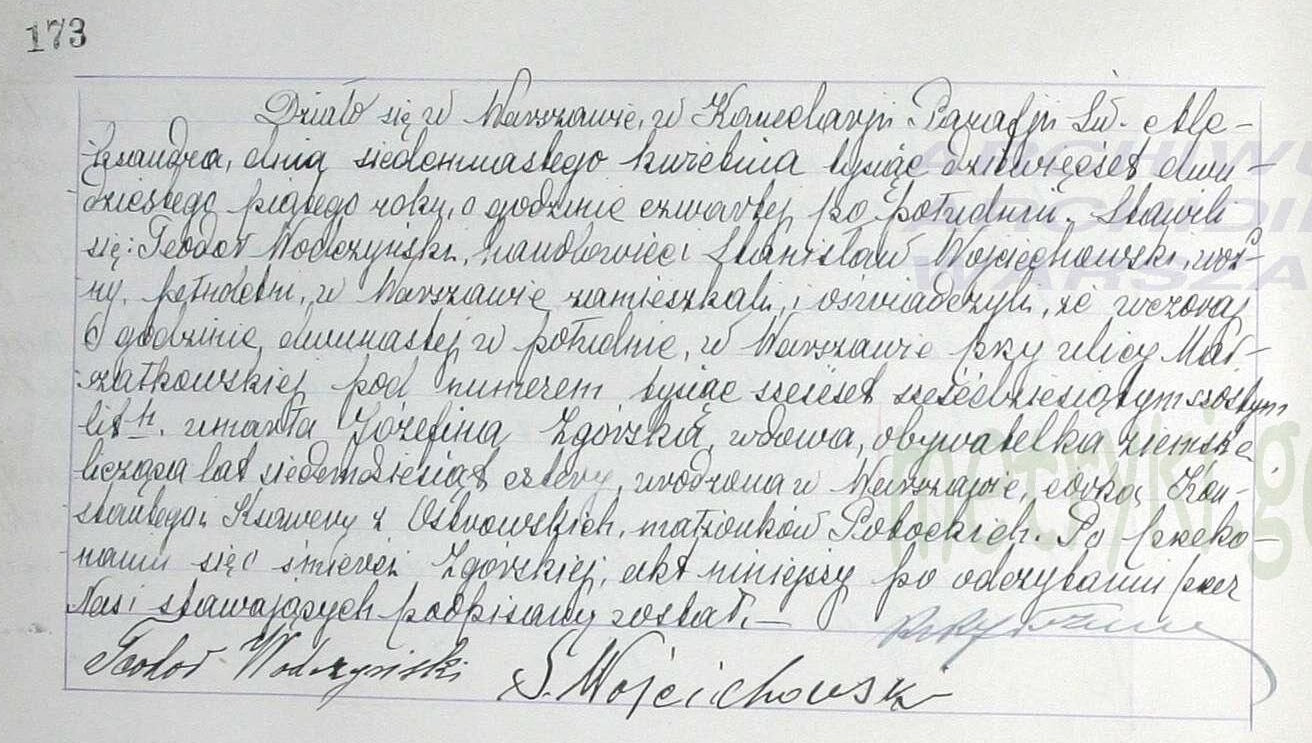 173
Działo się w Warszawie, w Kancelarji Parafji Św. Ale-
ksandra, dnia siedemnastego kwietnia tysiąc dziewięćset dwu-
dziestego piątego roku, o godzinie czwartej po południu. Stawili
się: Teodor Wodczyński, handlowiec i Stanisław Wojciechowski, woź-
ny, pełnoletni, w Warszawie zamieszkali, i oświadczyli, że wczoraj
o godzinie dwunastej w południe, w Warszawie przy ulicy Mar-
szałkowskiej pod numerem tysiąc sześćset sześćdziesiątym szóstym
lit. umarła Józefina Zgórska, wdowa, obywatelka ziemska
licząca lat siedemdziesiąt cztery, urodzona w Warszawie, córka Kon-
stantego i Ksawery z Ostrowskich, małżonków Potockich. Po przeko-
naniu się o śmierci Zgórskiej, akt niniejszy po odczytaniu przez
Nas i stawających podpisany został. —
Teodor Wodczyński
S. Wojciechowski
ARCHIWU
ARCHIDI
WARSZA
metryki.g